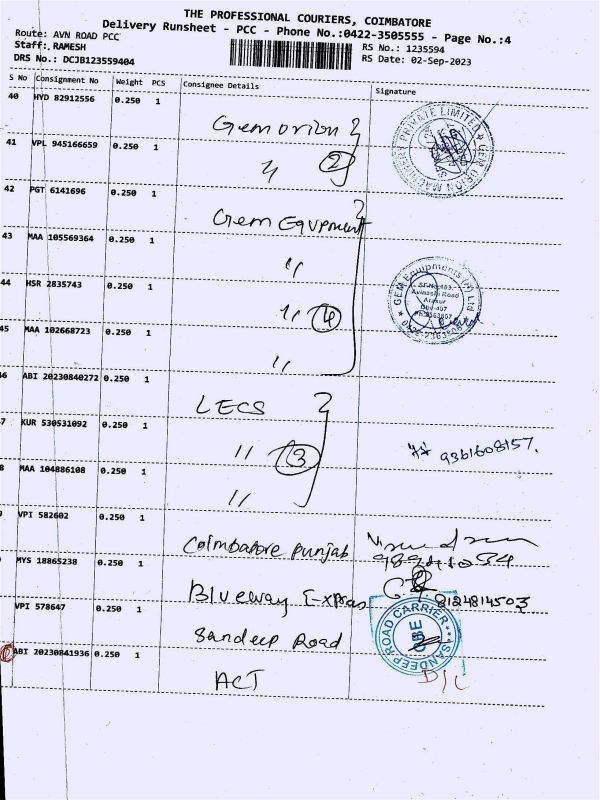 THE PROFESSIONAL COURIERS, COIMBATORE
Delivery Runsheet - PCC - Phone No.:0422-3505555 - Page No.:4
Route: AVN ROAD PCC
Staff: RAMESH
DRS No.: DCJB123559404
RS No.: 1235594
RS Date: 02-Sep-2023
S No Consignment No Weight PCS Consignee Details Signature
40 HYD 82912556 0.250 1
Gem Orion
41 VPL 945166659 0.250 1
〃 2
PRIVATE LIMITED ★ GEM ORION
42 PGT 6141696 0.250 1
Gem Equpment
43 MAA 105569364 0.250 1
〃
44 HSR 2835743 0.250 1
〃 4
★ GEM Equipments (P) Ltd ★
SF.No.403,
Avinashi Road
Arasur
45 MAA 102668723 0.250 1
〃
46 ABI 20230840272 0.250 1
LECS
7 KUR 530531092 0.250 1
〃 3
9361608157.
8 MAA 104886108 0.250 1
〃
VPI 582602 0.250 1
Coimbatore punjab
MYS 18865238 0.250 1
Blueway Expras
8124814503
VPI 578647 0.250 1
Sandeep Road
SANDEEP ROAD CARRIER ★★★
CBE
ABI 20230841936 0.250 1
ACT
D/C